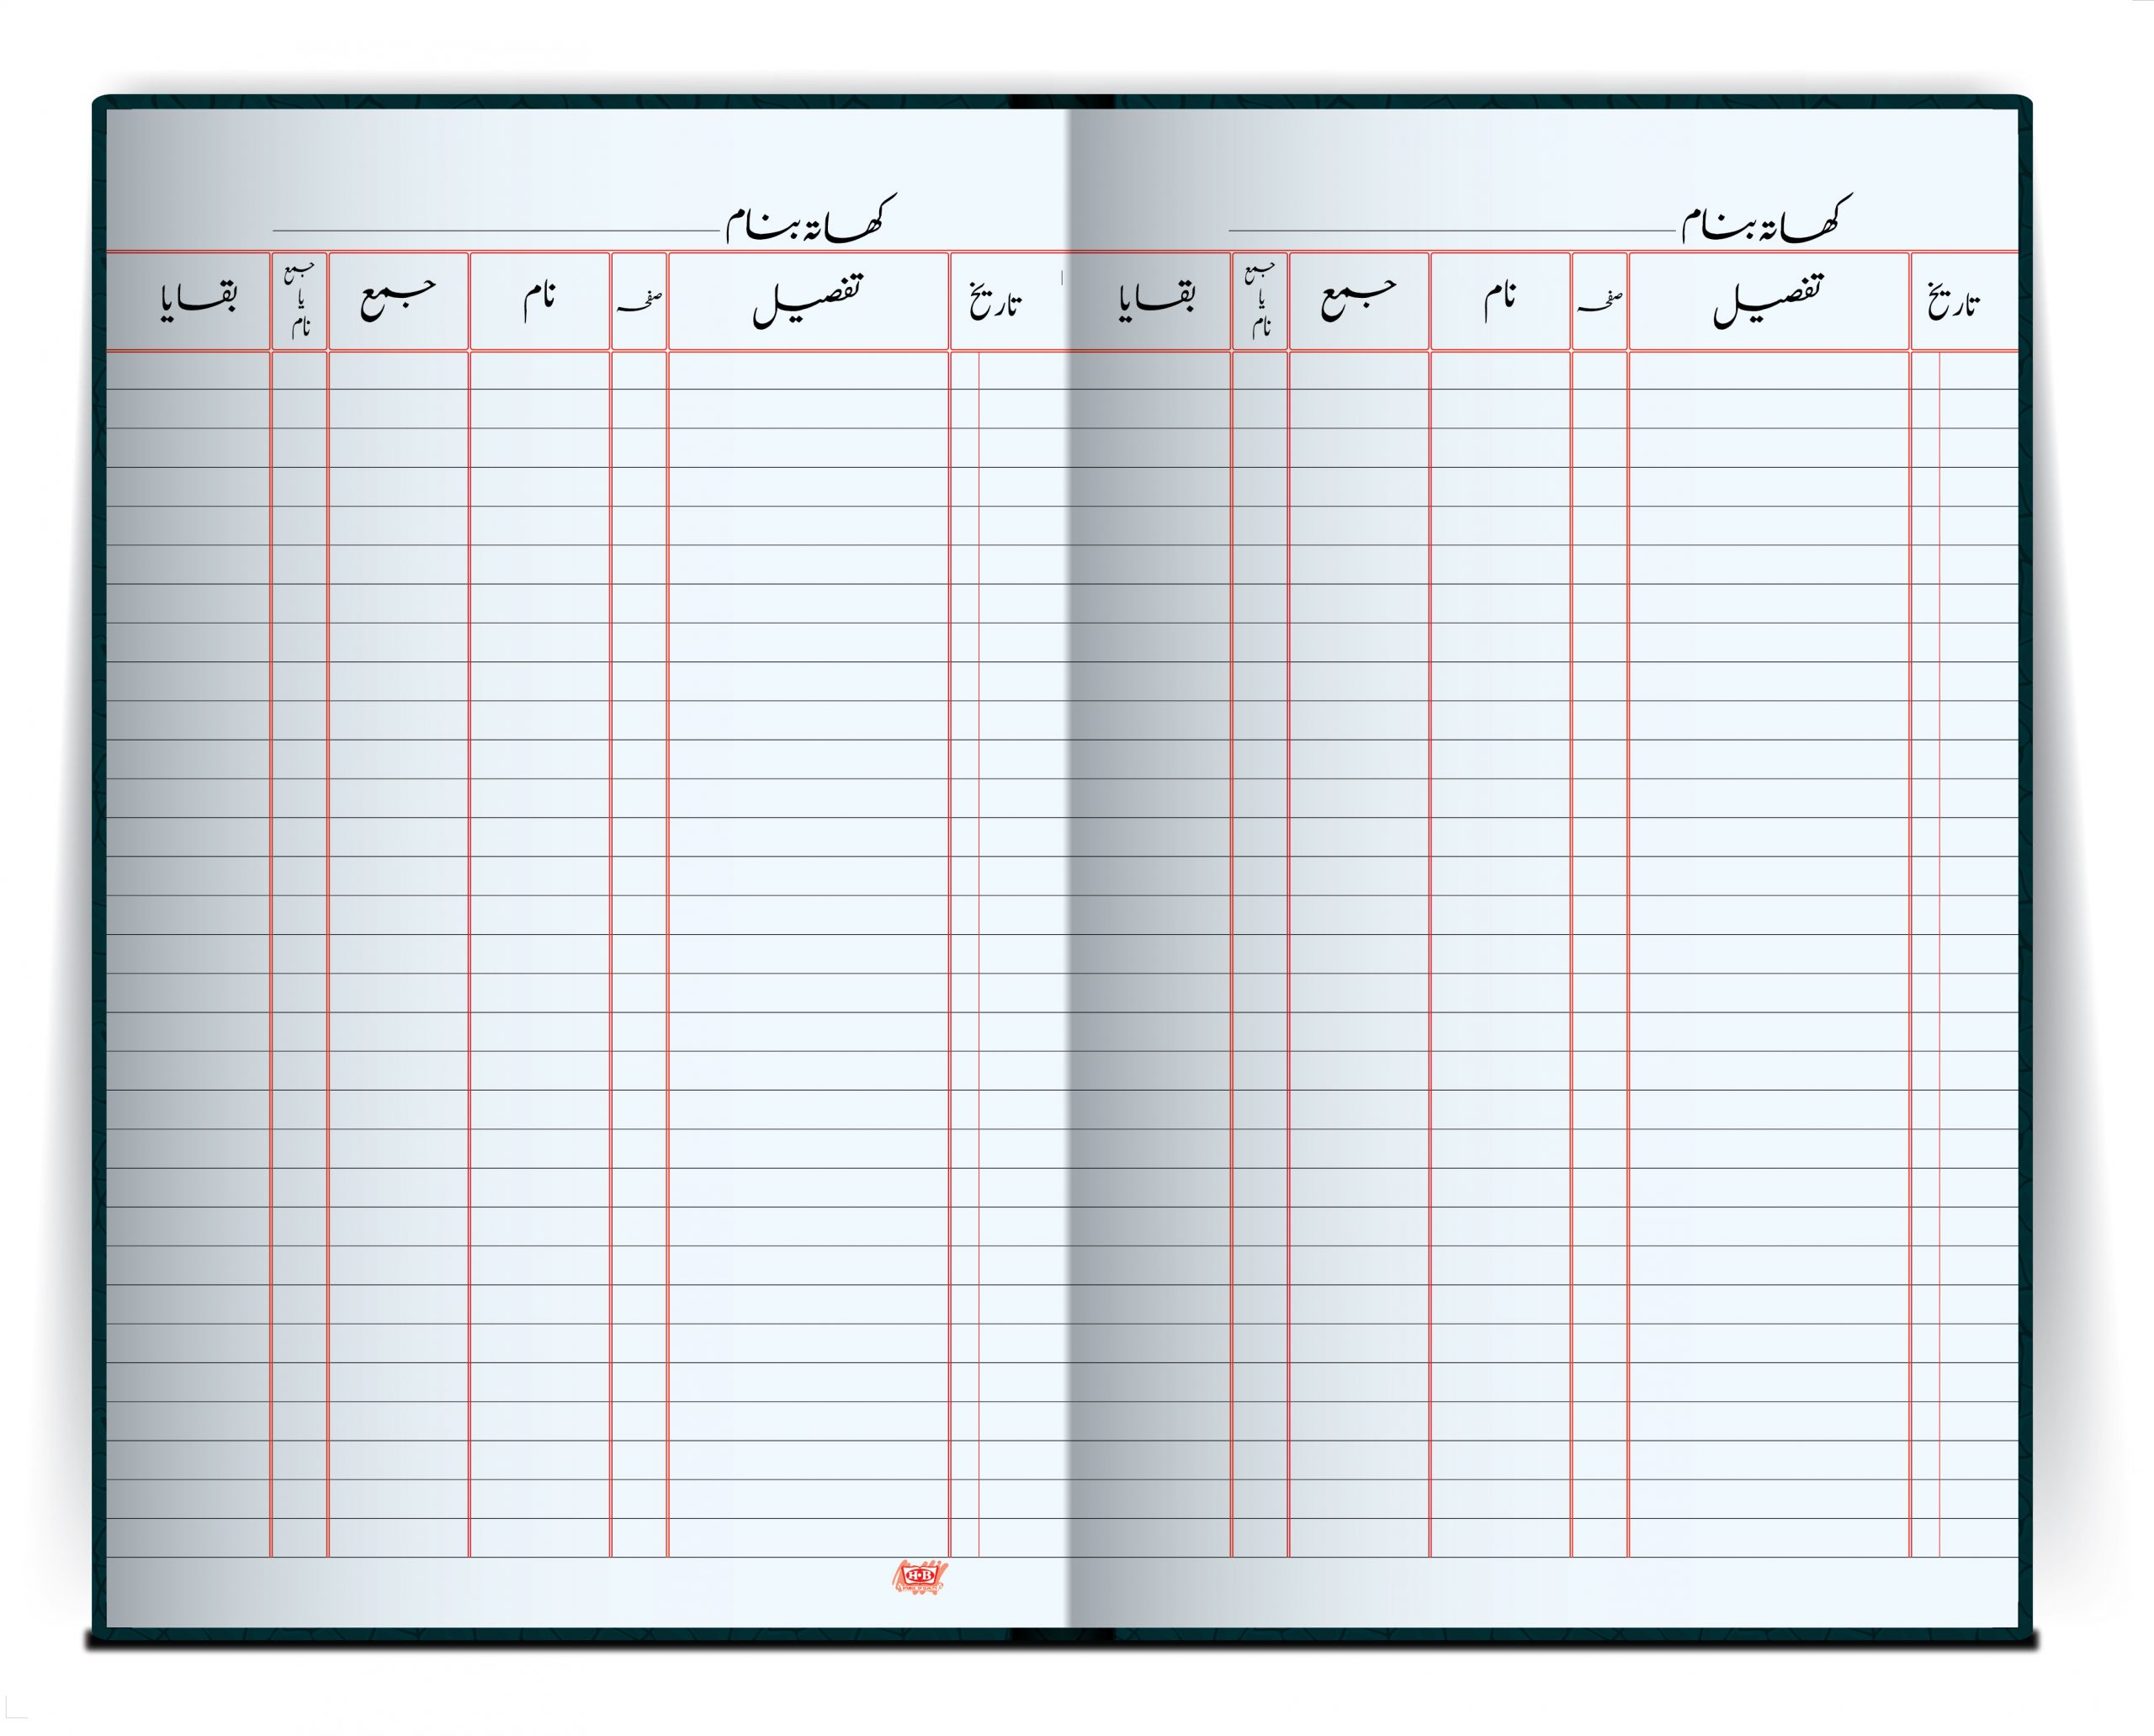 کھاتہ بنام
تاریخ تفصیل صفحہ نام جمع جمع یا نام بقایا
کھاتہ بنام
تاریخ تفصیل صفحہ نام جمع جمع یا نام بقایا
H·B